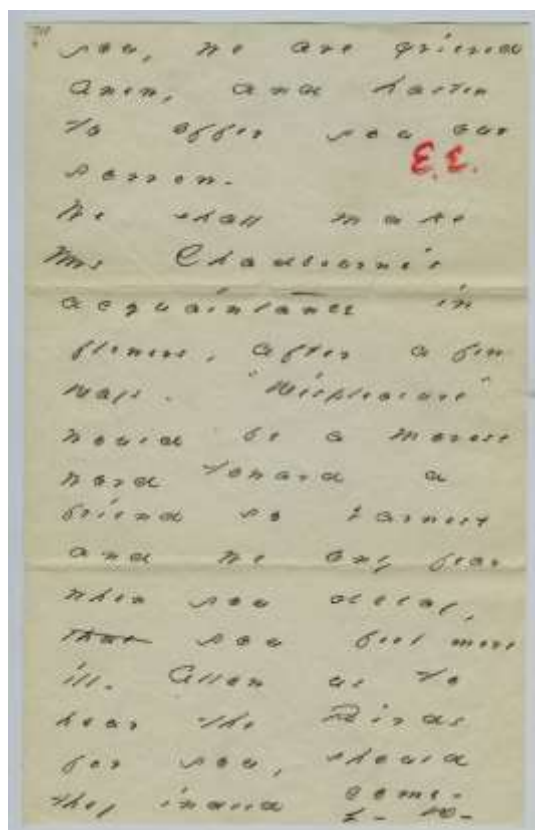 you, we are grieved
anew, and hasten
to offer you our
sorrow.
E. E.
We shall make
Mrs Chadbourne's
acquaintance in
flowers, after a few
days. "Displeasure"
would be a morose
word toward a
friend so earnest
and we only fear
when you delay,
that you feel more
ill. Allow us to
hear the Birds
for you, should
they indeed come -
E - D -